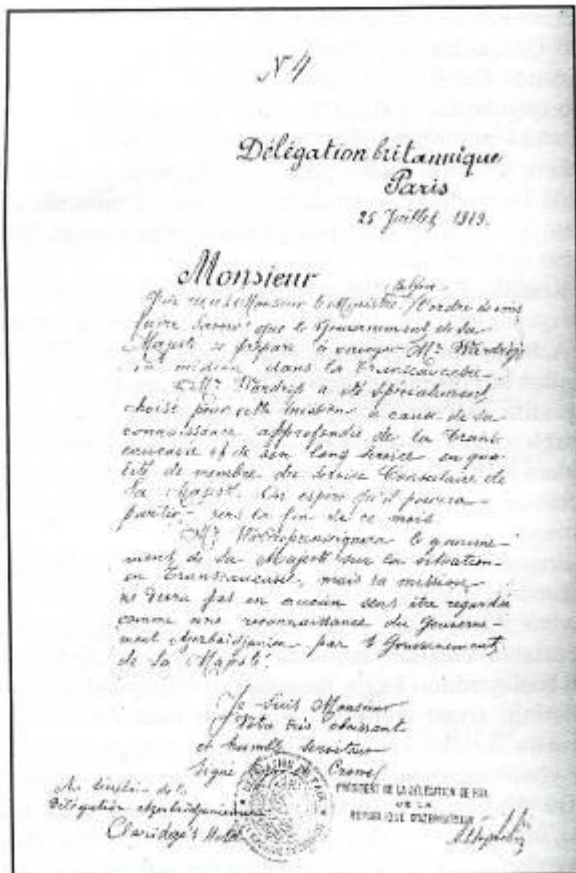 N 4
Délégation britannique
Paris
25 Juillet 1919.
Monsieur
J'ai reçu Monsieur le Ministre l'ordre de vous
faire savoir que le Gouvernement de Sa
Majesté se prépare à envoyer Mr. Wardrop
en mission dans la Transcaucasie.
Mr. Wardrop a été spécialement
choisi pour cette mission à cause de sa
connaissance approfondie de la Trans
caucasie et de son long service en qua
lité de membre du service Consulaire de
Sa Majesté. On espère qu'il pourra
partir vers la fin de ce mois.
Mr. le gouverne-
ment de Sa Majesté sur la situation
en Transcaucasie, mais sa mission
ne devra pas en aucun sens être regardée
comme une reconnaissance du Gouverne
ment Azerbaidjanien par le Gouvernement
de Sa Majesté.
Je suis Monsieur
Votre très obéissant
et humble serviteur
Signé Crowe
PRÉSIDENT DE LA DÉLÉGATION DE PAIX
DE LA
RÉPUBLIQUE D'AZERBAIDJAN
de la
Délégation Azerbaidjanienne
Claridge's Hotel